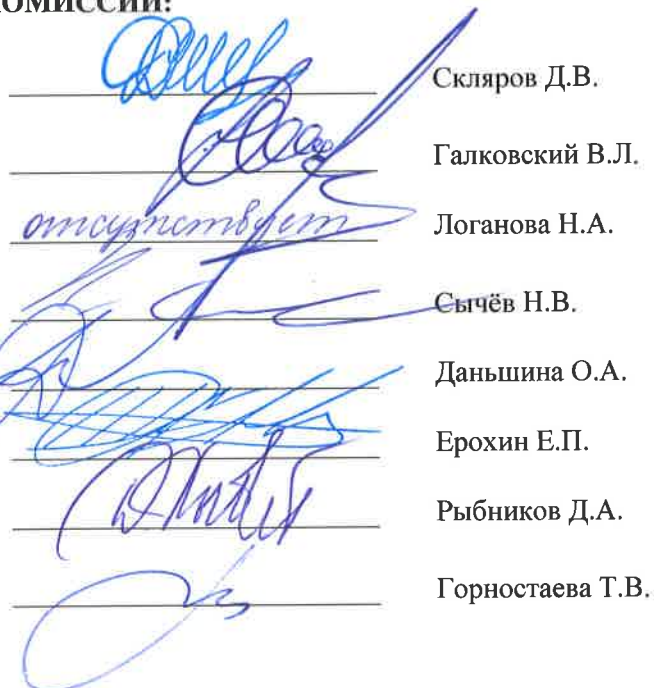 КОМИССИИ:
Скляров Д.В.
Галковский В.Л.
отсутствует Логанова Н.А.
Сычёв Н.В.
Даньшина О.А.
Ерохин Е.П.
Рыбников Д.А.
Горностаева Т.В.